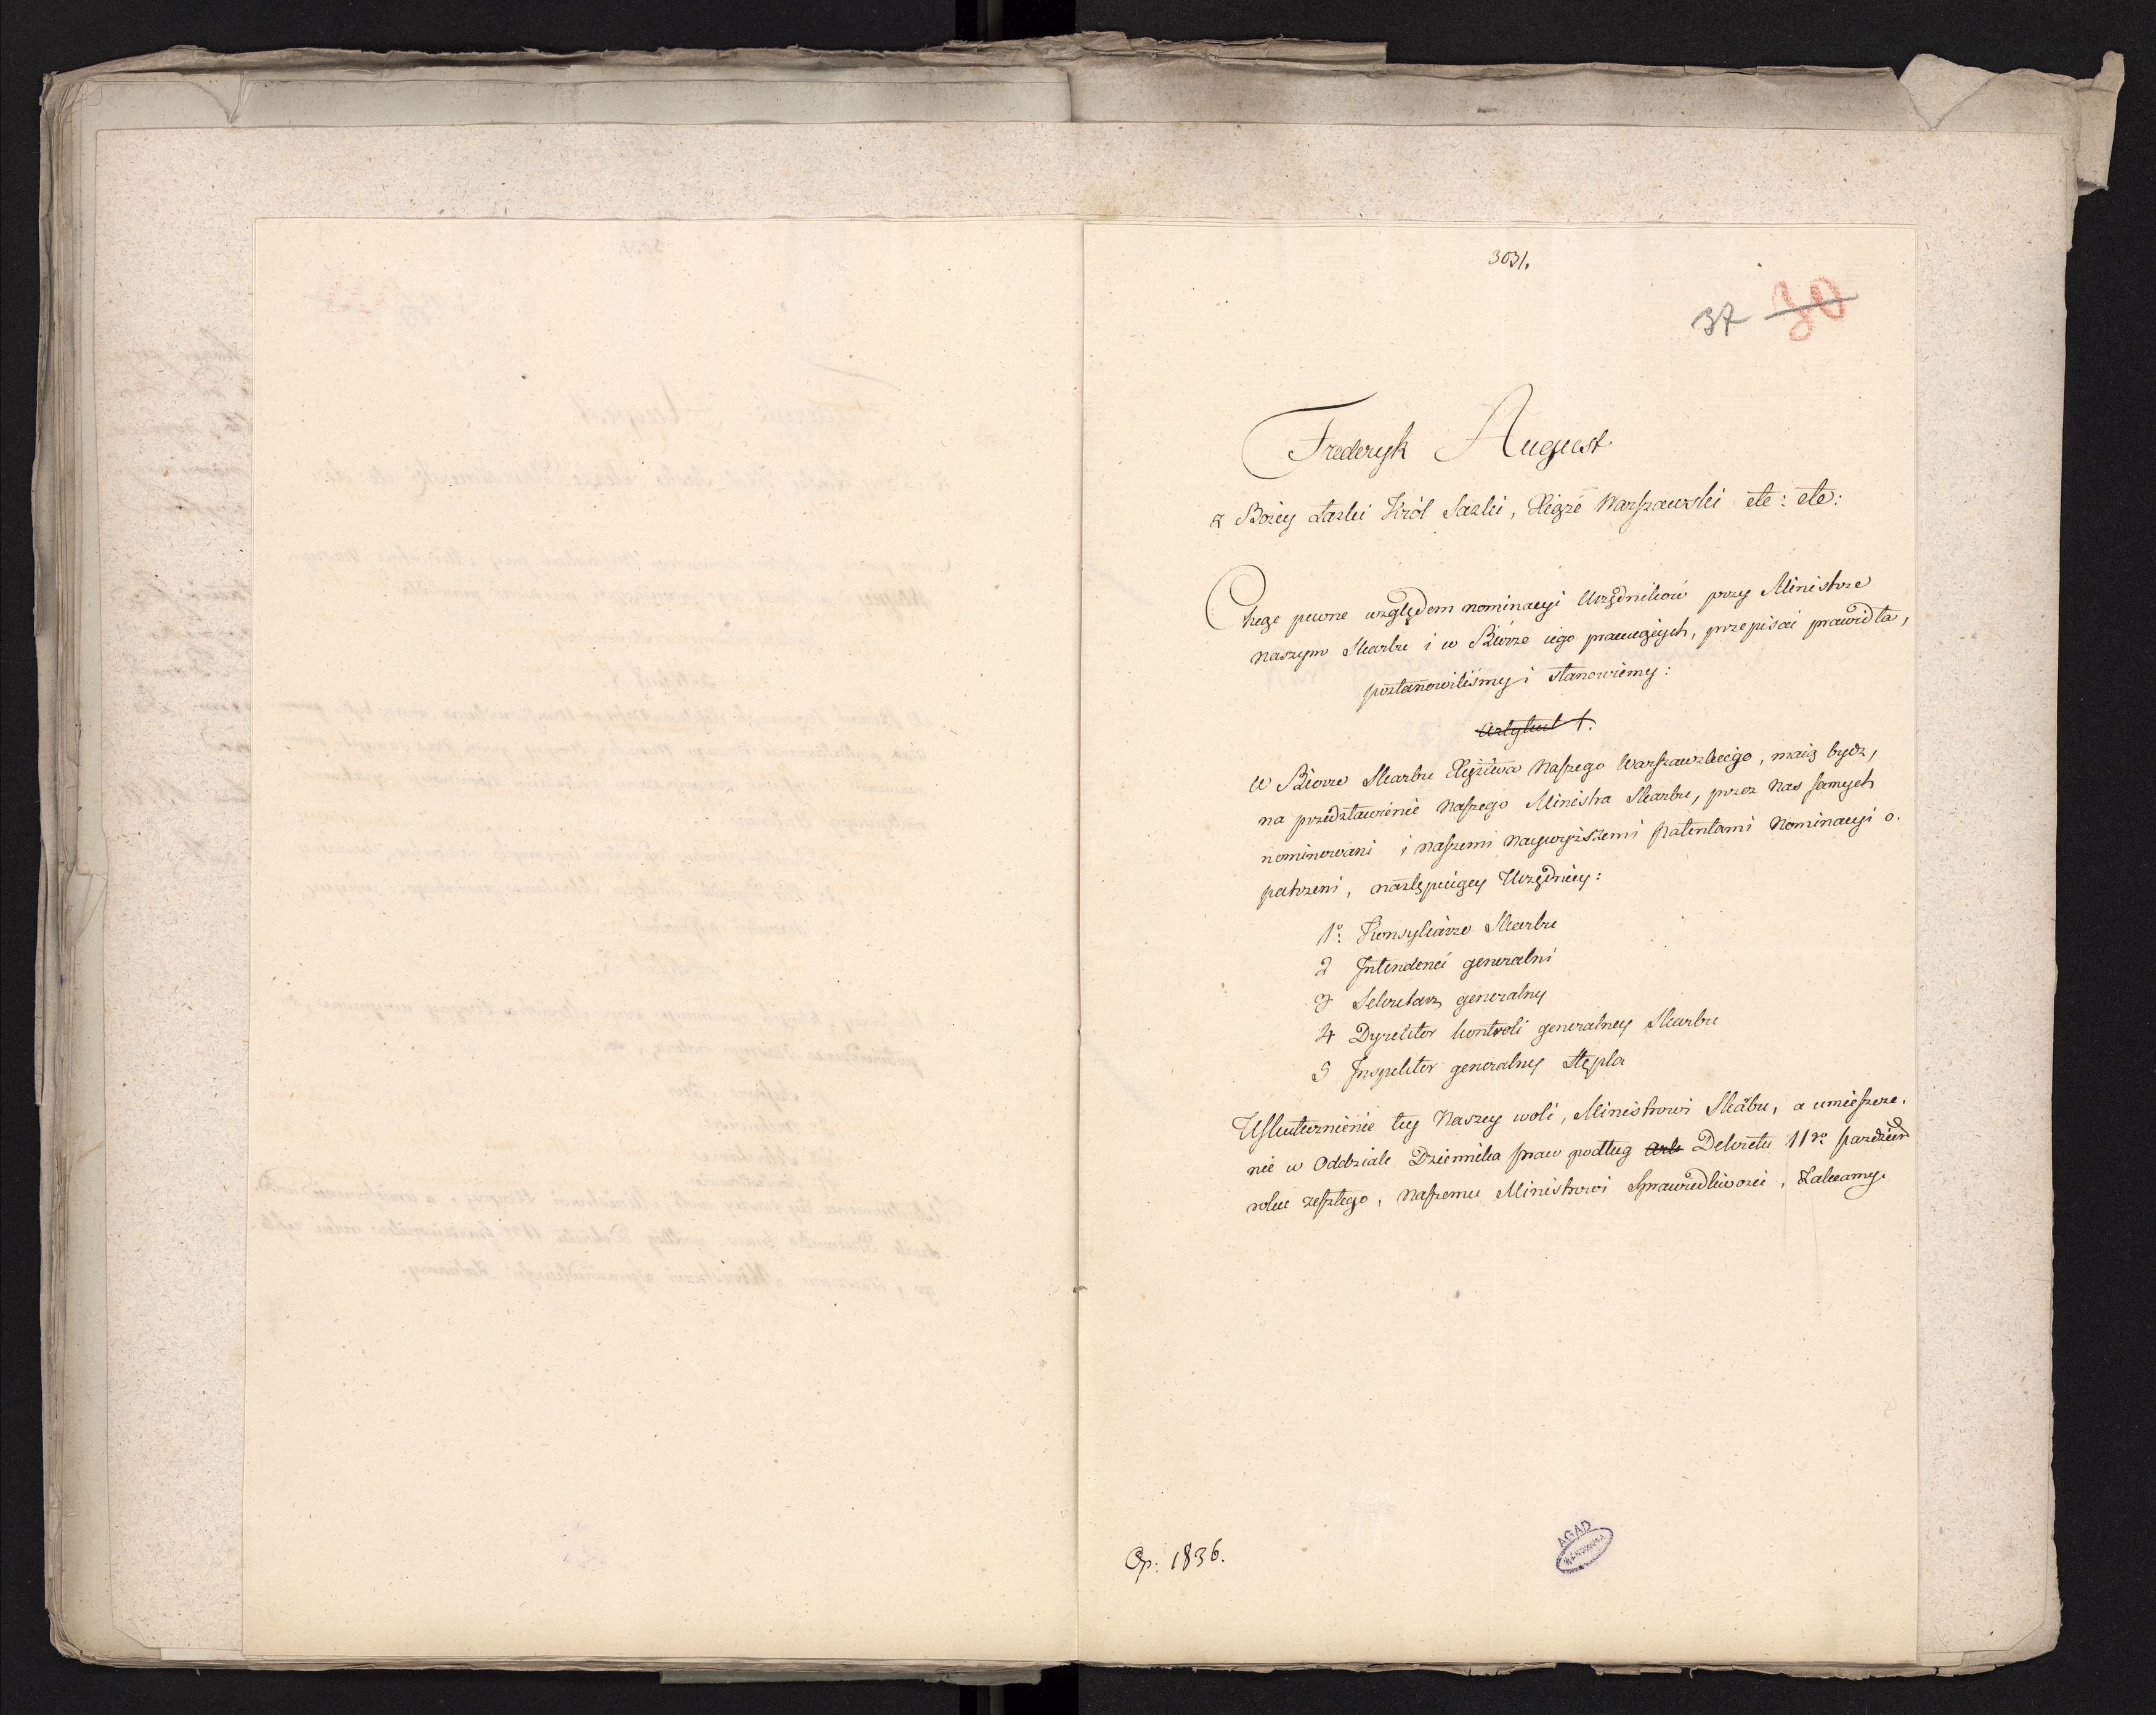 3031.
37 30
Frederyk August
z Bożey Łaski Król Saski, Xiąże Warszawski etc: etc:
Chcąc pewne względem nominacyi Urzędników przy Ministrze
naszym Skarbu i w Biórze iego pracuiących, przepisać prawidła,
postanowiliśmy i stanowiemy:
Artykuł 1.
W Biorze Skarbu Xięstwa Naszego Warszawskiego, maią bydz,
na przedstawienie Naszego Ministra Skarbu, przez Nas samych
nominowani i naszemi naywyższemi patentami Nominacyi o-
patrzeni, następuiący Urzędnicy:
1o: Konsyliarze Skarbu
2 Intendenci generalni
3 Sekretarz generalny
4 Dyrektor kontroli generalney Skarbu
5 Inspektor generalny Stępla
Uskutecznienie tey Naszey woli, Ministrowi Skarbu, a umieszcze-
nie w Oddziale Dziennika praw podług Art Dekretu 11go pazdzier
roku zeszłego, Naszemu Ministrowi Sprawiedliwości, Zalecamy.
Op: 1836.
AGAD
WARSZAWA